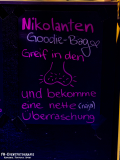 Nikolanten
Goodie-Bags
Greif in den
und bekomme
eine nette
Überraschung